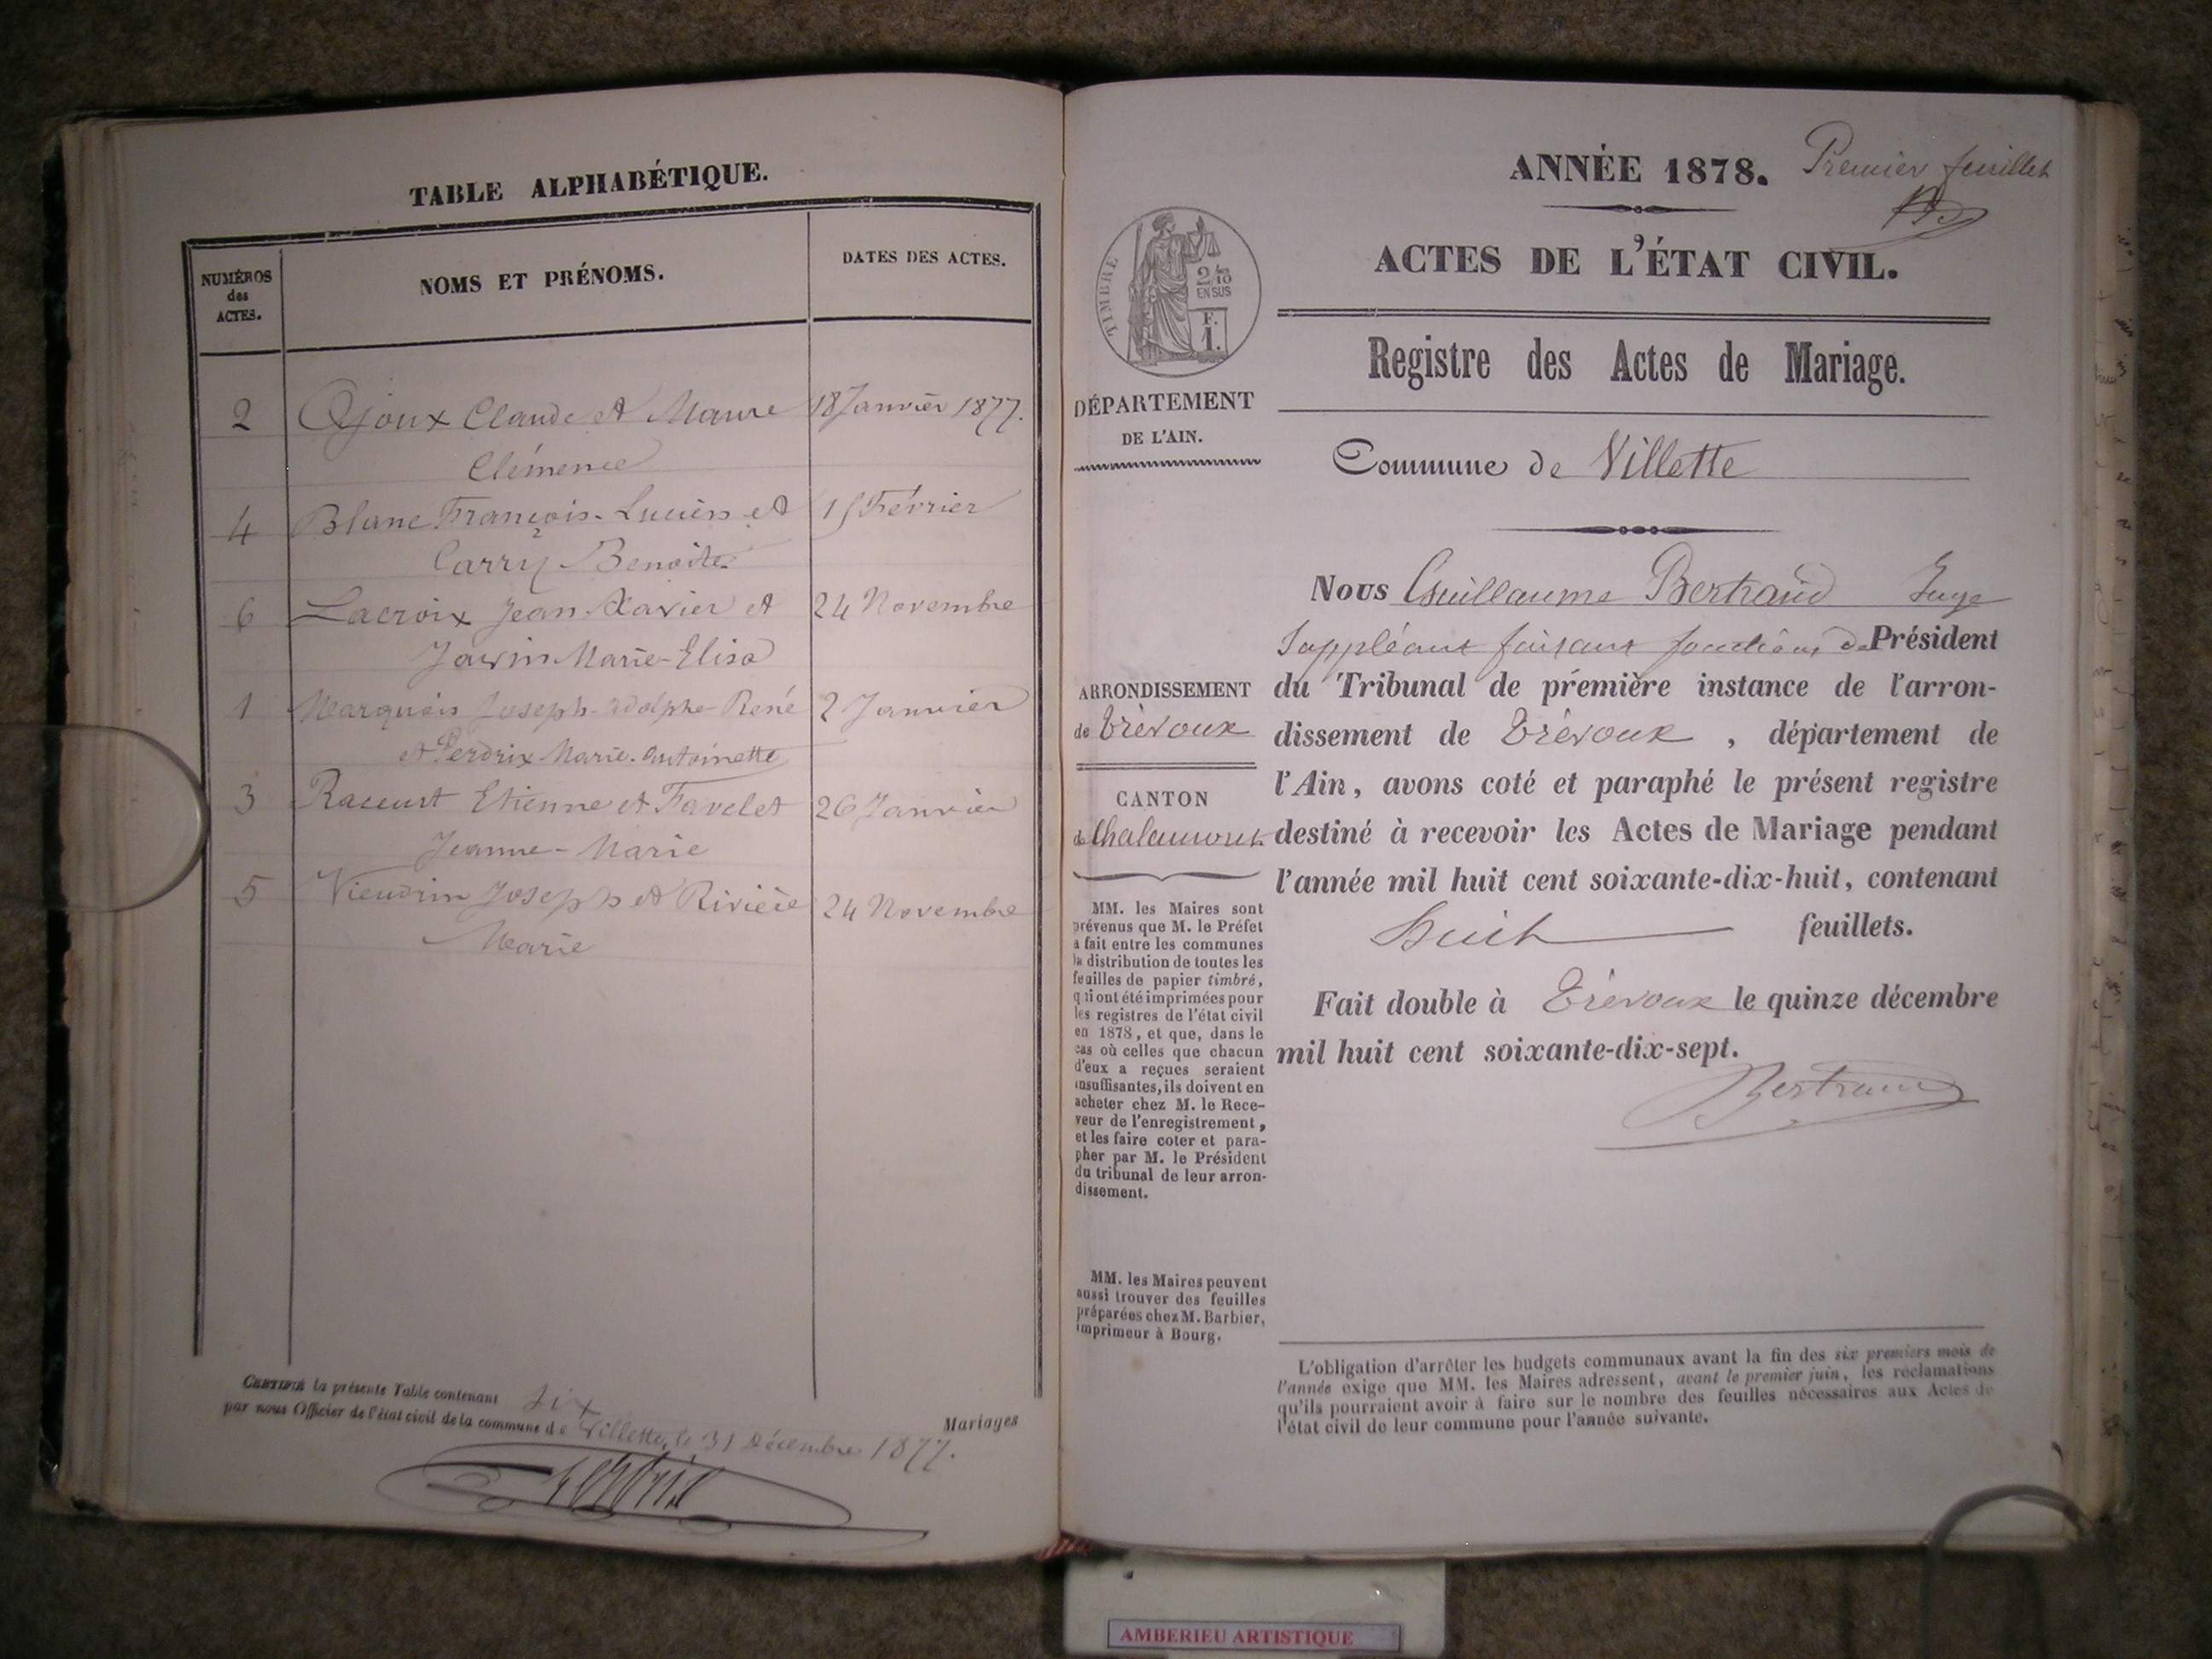 TABLE ALPHABÉTIQUE.
NUMÉROS
des
ACTES.
NOMS ET PRÉNOMS.
DATES DES ACTES.
2 Ojoux Claude et Maure 18 Janvier 1877.
Clémence
4 Blanc François-Lucien et 15 Février
Carry Benoite
6 Lacroix Jean-Xavier et 24 Novembre
Marie-Elisa
1 Marquis Joseph-Adolphe-René 2 Janvier
et Perdrix Marie-Antoinette
3 Racurt Etienne et Favelet 26 Janvier
Jeanne-Marie
5 Vieudrin Joseph et Rivière 24 Novembre
Marie
CERTIFIÉ la présente Table contenant six Mariages
par nous Officier de l'état civil de la commune de Villette, le 31 Décembre 1877.
Perdrix
ANNÉE 1878. Premier feuillet
ACTES DE L'ÉTAT CIVIL.
TIMBRE
2/10
EN SUS
F.
1.
Registre des Actes de Mariage.
DÉPARTEMENT
DE L'AIN.
Commune de Villette
Nous Guillaume Bertrand Juge
Suppléant faisant fonctions de Président
du Tribunal de première instance de l'arron-
dissement de Trévoux , département de
l'Ain, avons coté et paraphé le présent registre
destiné à recevoir les Actes de Mariage pendant
l'année mil huit cent soixante-dix-huit, contenant
huit feuillets.
Fait double à Trévoux le quinze décembre
mil huit cent soixante-dix-sept.
Bertrand
ARRONDISSEMENT
de Trévoux
CANTON
de Chalamont
MM. les Maires sont
prévenus que M. le Préfet
a fait entre les communes
la distribution de toutes les
feuilles de papier timbré,
qui ont été imprimées pour
les registres de l'état civil
en 1878, et que, dans le
cas où celles que chacun
d'eux a reçues seraient
insuffisantes, ils doivent en
acheter chez M. le Rece-
veur de l'enregistrement,
et les faire coter et para-
pher par M. le Président
du tribunal de leur arron-
dissement.
MM. les Maires peuvent
aussi trouver des feuilles
préparées chez M. Barbier,
imprimeur à Bourg.
L'obligation d'arrêter les budgets communaux avant la fin des six premiers mois de
l'année exige que MM. les Maires adressent, avant le premier juin, les réclamations
qu'ils pourraient avoir à faire sur le nombre des feuilles nécessaires aux Actes de
l'état civil de leur commune pour l'année suivante.
AMBERIEU ARTISTIQUE